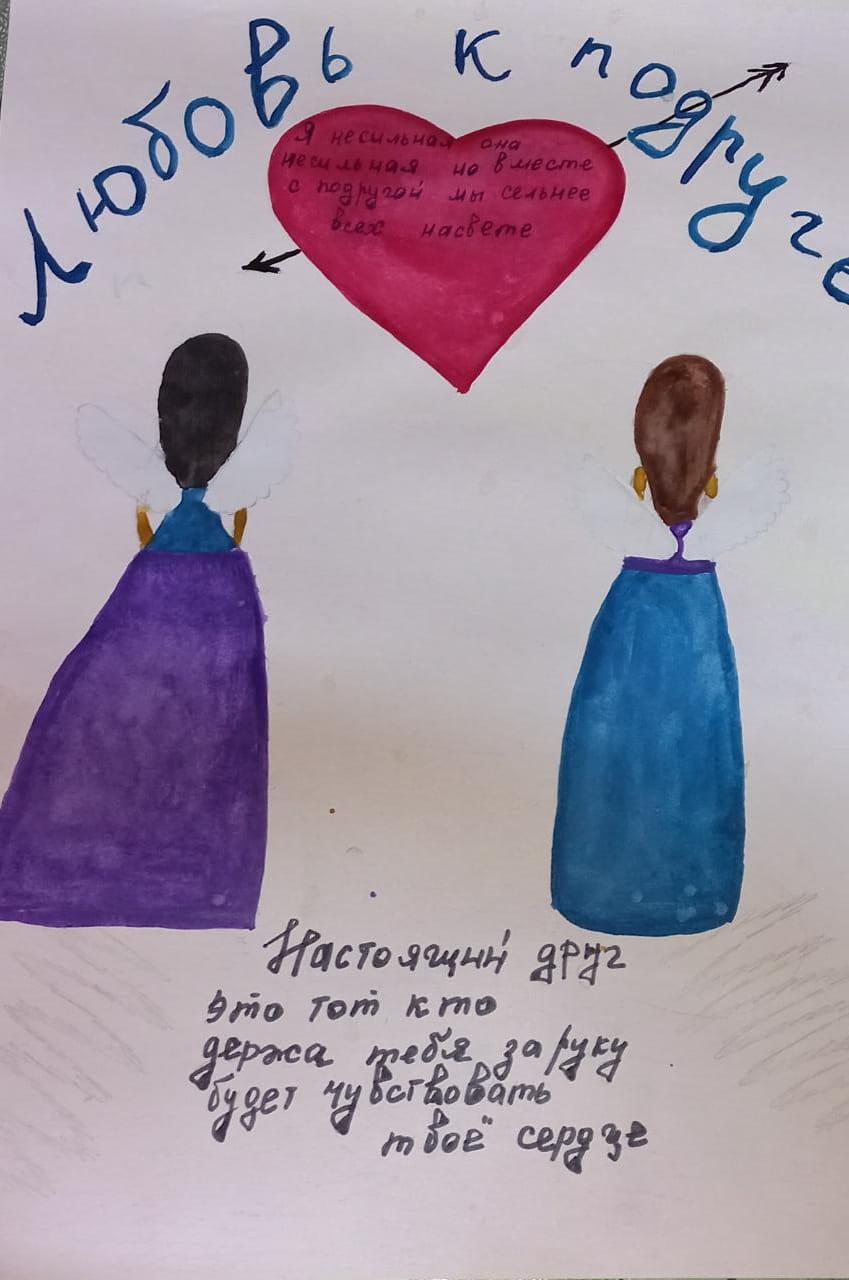 Любовь к подруге
Я несильная она
несильная но вместе
с подругой мы сельнее
всех насвете
Настоящий друг
это тот кто
держа тебя за руку
будет чувствовать
твоё сердце